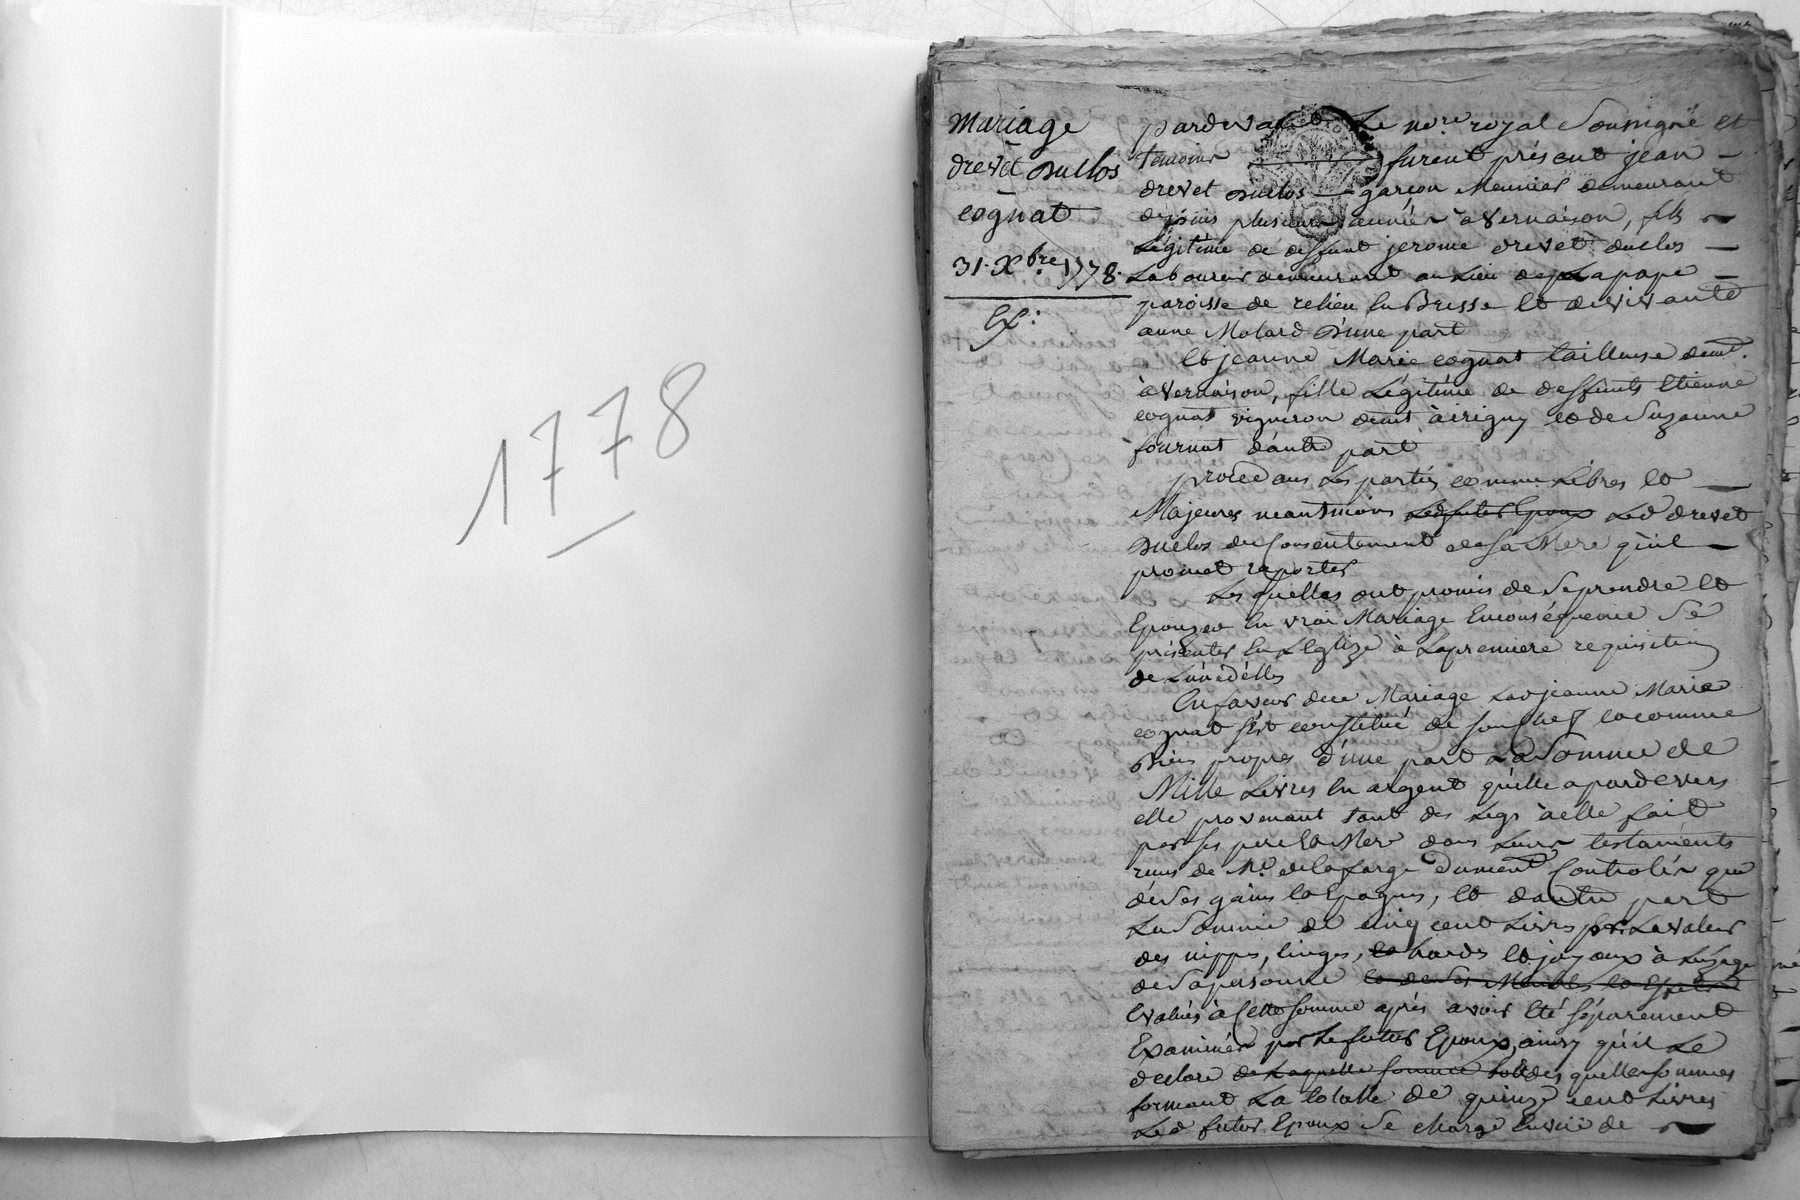 1778
Mariage
drevet Duclos
cognat
31. Xbre. 1778.
Ex:
pardevant Le nore. royal Soussigné et
temoins furent présent jean
drevet Duclos garçon Meunier demeurant
depuis plusieurs années à Vernaison, fils
Légitime de deffunt jerome drevet duclos
Laboureur demeurant au Lieu de La pape
paroisse de relieu En Bresse et de vivante
anne Molard D'une part
Et jeanne Marie cognat tailleuse demt.
à Vernaison, fille Légitime de deffunts Etienne
cognat vigneron demt. à irigny et de Suzanne
fournat d'autre part
procedans Les parties comme Libres et
Majeures neantmoins Ledt futur Epoux Led drevet
Duclos du Consentement de Sa Mere qu'il
promet raporter
Lesquelles ont promis de Se prendre et
Epouzer En vrai Mariage Enconséquence Se
présenter En L'Eglize à La premiere requisition
de L'une d'elles
En faveur dece Mariage Lad jeanne Marie
cognat s'est constitué de son Chef et comme
Biens propres d'une part La Somme de
Mille Livres En argent qu'elle a pardevers
elle provenant tant des Legs à elle fait
par Ses pere et Mere dans Leurs testaments
reçus de Me. delaforge Dument Controlés que
de Ses gains et Epagnes, et d'autre part
La Somme de cinq cent Livres pr. La valeur
des nippes, linges, et hardes et joyaux à L'uzage
de Sa personne et de Ses Meubles et Effets
Evalués à Cette Somme après avoir Eté Séparement
Examinés par Le futur Epoux, ainsy qu'il Le
declare de Laquelle Somme desquelles Sommes
formant La totalle de quinze cent Livres
Led futur Epoux Se charge Envië de